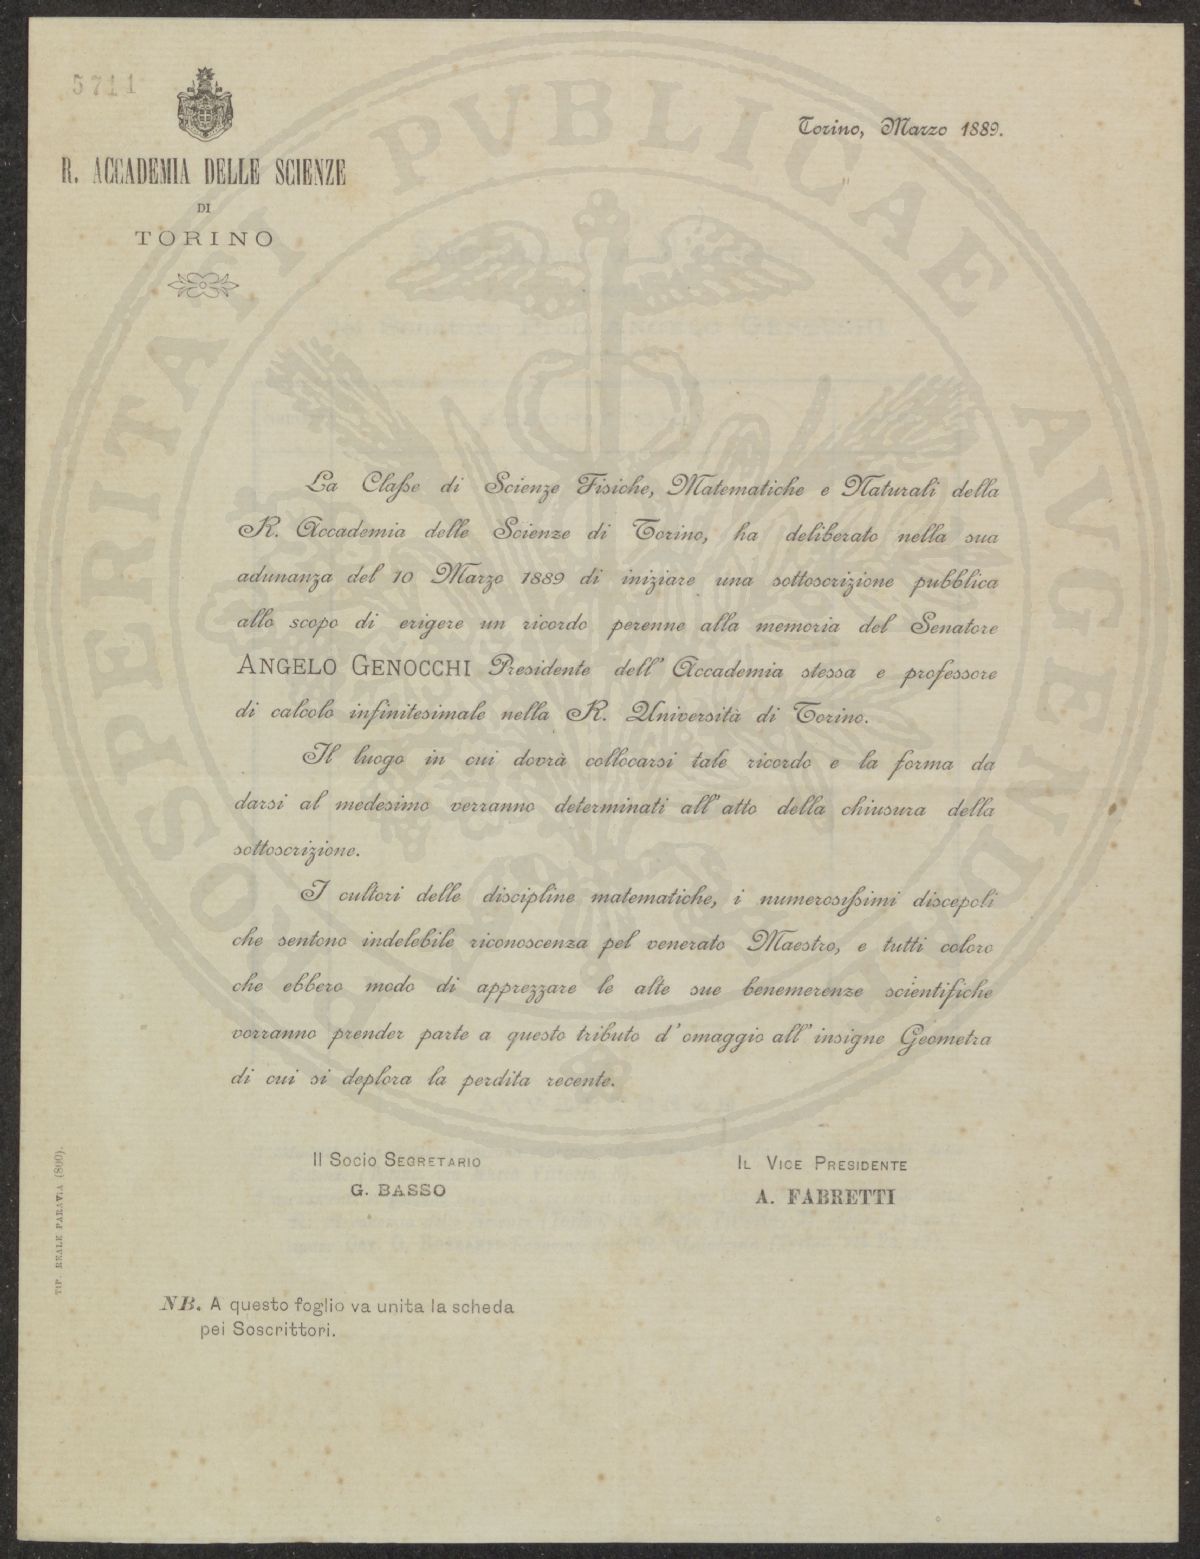 5711
R. ACCADEMIA DELLE SCIENZE
DI
TORINO
Torino, Marzo 1889.
La Claſse di Scienze Fisiche, Matematiche e Naturali della
R. Accademia delle Scienze di Torino, ha deliberato nella sua
adunanza del 10 Marzo 1889 di iniziare una sottoscrizione pubblica
allo scopo di erigere un ricordo perenne alla memoria del Senatore
ANGELO GENOCCHI Presidente dell' Accademia stessa e professore
di calcolo infinitesimale nella R. Università di Torino.
Il luogo in cui dovrà collocarsi tale ricordo e la forma da
darsi al medesimo verranno determinati all' atto della chiusura della
sottoscrizione.
I cultori delle discipline matematiche, i numerosiſsimi discepoli
che sentono indelebile riconoscenza pel venerato Maestro, e tutti coloro
che ebbero modo di apprezzare le alte sue benemerenze scientifiche
vorranno prender parte a questo tributo d' omaggio all' insigne Geometra
di cui si deplora la perdita recente.
Il Socio SEGRETARIO
G. BASSO
IL VICE PRESIDENTE
A. FABRETTI
TIP. REALE PARAVIA (800).
NB. A questo foglio va unita la scheda
pei Soscrittori.
PROSPERITATI PVBLICAE AVGENDAE